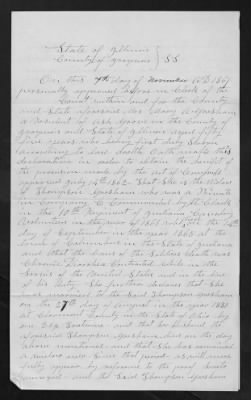 State of Illinois
County of Iroquois } SS
On this 7th day of November A.D. 1867
personally appeared before me Clerk of the
Court within and for the County
and State aforesaid Mrs Mary A. Gresham
a resident of Ash Grove in the County of
Iroquois and State of Illinois aged fifty
five years who being first duly sworn
according to law doth on oath make this
declaration in order to obtain the benefit of the
provision made by the act of Congress
approved July 14th 1862 That she is the widow
of Thompson Gresham who was a Private
in Company commanded by
in the 10th Regiment of Indiana Cavalry
day of September in the year 1865 at the
in the State of Indiana
and that the cause of the Soldiers death was
Chronic Diarrhea contracted while in the
Service of the United States and in the line
of his duty. She further declares that She
was married to the Said Thompson Gresham
on the 27th day of August in the year 1830
at Clermont County in the State of Ohio by
one that her husband the
aforesaid Thompson Gresham died on the day
above mentioned and that She has remained
a widow ever Since that period as will more
fully appear by reference to the proof hereto
and the Said Thompson Gresham